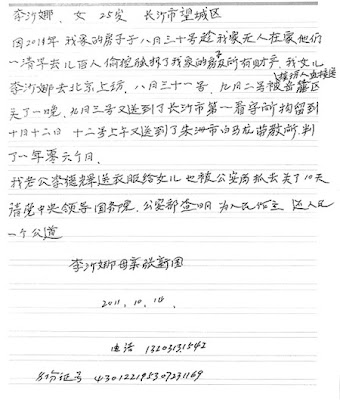 李沙娜、女 25岁 长沙市望城区
因2011年我家的房子于八月三十号趁我家无人在家他们
一清早去几百人偷偷强拆了我家的房子及所有财产,我女儿
李沙娜去北京上访,八月三十一号,九月二号被接访人直接送望区
关了一晚,九月三号又送到了长沙市第一看守所拘留到
十月十二日 十二号上午又送到了株洲市白马垅劳教所,判
了一年零六个月.
我老公李德辉送衣服给女儿也被公安局抓去关了10天
请党中央领导国务院,公安部查明 为人民作主 还人民
一个公道
李沙娜母亲张新国
2011.10.14.
电话 13203131542
身份证号 430122195307231169